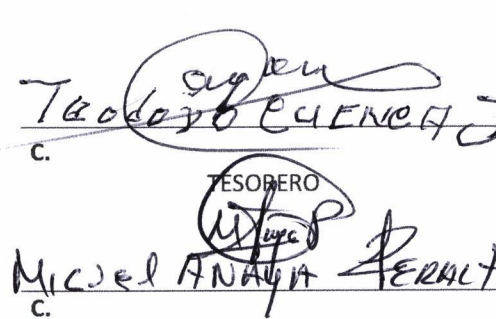 Teodoro CUENCA J
C.
TESORERO
MIGUEl ANAYA PERALT
C.